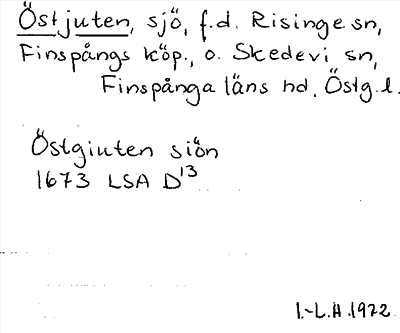 Östjuten, sjö, f.d. Risinge sn,
Finspångs köp., o. Skedevi sn,
Finspånga läns hd. Östg.l.
Östgiuten siön
1673 LSA D13
I.-L.H. 1972